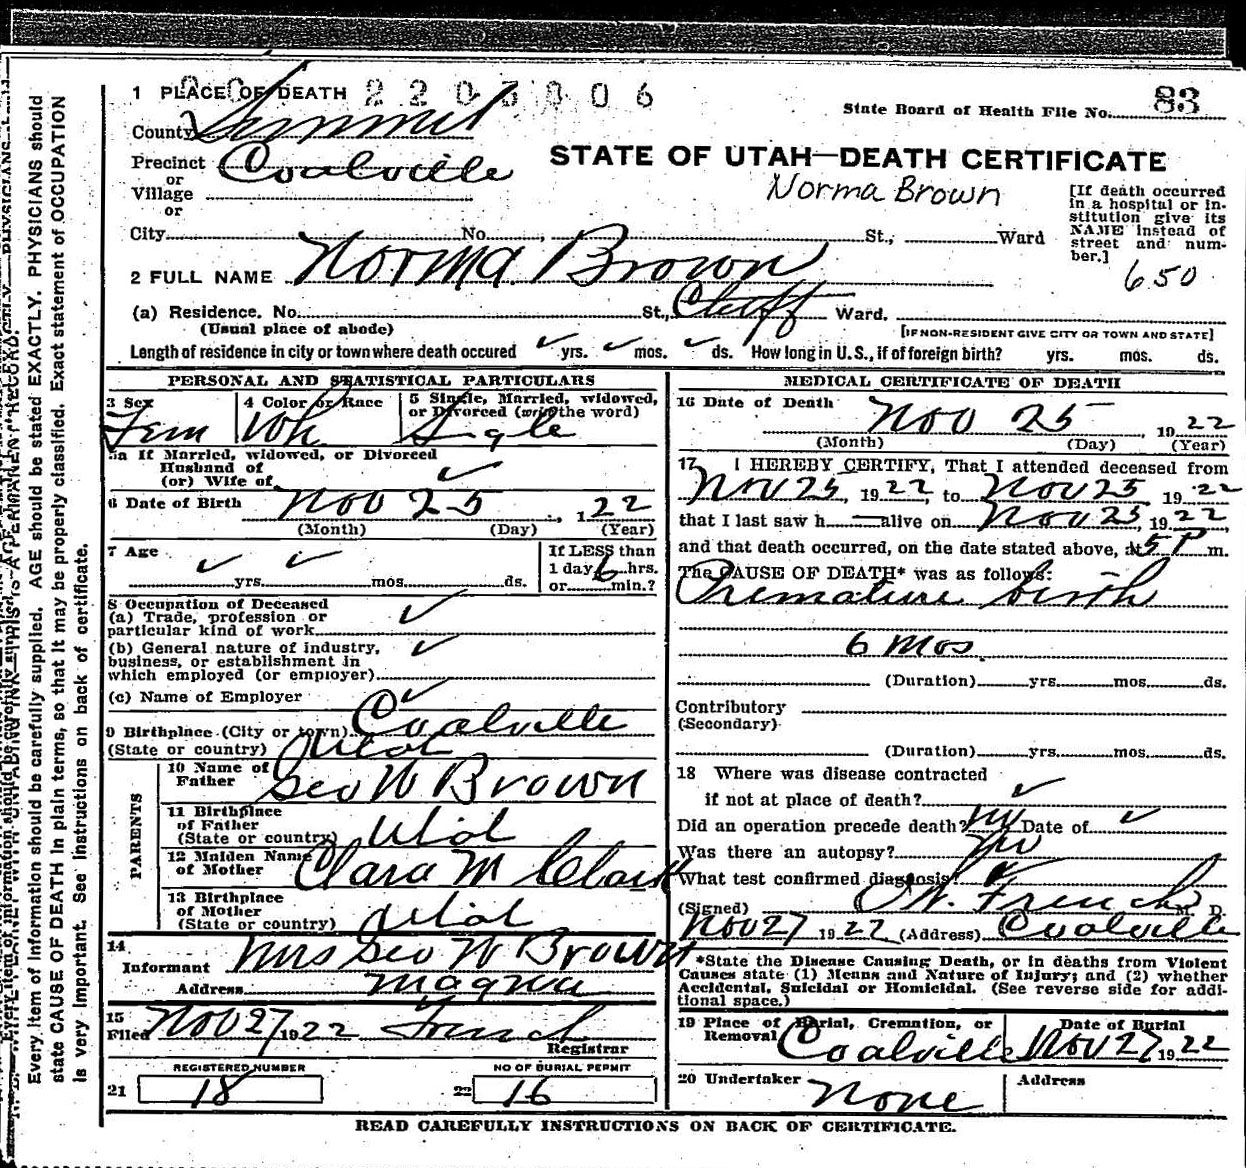 1 PLACE OF DEATH 2203006
State Board of Health File No. 83
County Summit
Precinct Coalville
or
Village
or
STATE OF UTAH—DEATH CERTIFICATE
Norma Brown
[If death occurred
in a hospital or in-
stitution give its
NAME instead of
street and num-
ber.]
650
City No. , St., Ward
2 FULL NAME Norma Brown
(a) Residence. No. St., Ward.
(Usual place of abode) [IF NON-RESIDENT GIVE CITY OR TOWN AND STATE]
Length of residence in city or town where death occured ✓ yrs. ✓ mos. ✓ ds. How long in U.S., if of foreign birth? yrs. mos. ds.
PERSONAL AND STATISTICAL PARTICULARS
3 Sex 4 Color or Race 5 Single, Married, widowed,
or Divorced (write the word)
Fem Wh Single
5a If Married, widowed, or Divorced
Husband of
(or) Wife of ✓
6 Date of Birth Nov 25, 1922
(Month) (Day) (Year)
7 Age ✓ ✓ If LESS than
yrs. mos. ds. 1 day 6 hrs.
or min.?
8 Occupation of Deceased
(a) Trade, profession or
particular kind of work ✓
(b) General nature of industry,
business, or establishment in
which employed (or employer) ✓
(c) Name of Employer ✓
9 Birthplace (City or town) Coalville
(State or country) Utah
PARENTS
10 Name of
Father Geo W Brown
11 Birthplace
of Father
(State or country) Utah
12 Maiden Name
of Mother Clara M Clark
13 Birthplace
of Mother
(State or country) Utah
14
Informant Mrs Geo W Brown
Address Magna
15
Filed Nov 27 1922 French
Registrar
REGISTERED NUMBER NO OF BURIAL PERMIT
21 18 22 16
MEDICAL CERTIFICATE OF DEATH
16 Date of Death Nov 25, 1922
(Month) (Day) (Year)
17 I HEREBY CERTIFY, That I attended deceased from
Nov 25, 1922, to Nov 25, 1922
that I last saw h — alive on Nov 25, 1922,
and that death occurred, on the date stated above, at 5 P m.
The CAUSE OF DEATH* was as follows:
Premature birth
6 Mos.
(Duration) yrs. mos. ds.
Contributory
(Secondary)
(Duration) yrs. mos. ds.
18 Where was disease contracted
if not at place of death? ✓
Did an operation precede death? no Date of ✓
Was there an autopsy? no
What test confirmed diagnosis? ✓
(Signed) French M. D.
Nov 27 1922 (Address) Coalville
*State the Disease Causing Death, or in deaths from Violent
Causes state (1) Means and Nature of Injury; and (2) whether
Accidental, Suicidal or Homicidal. (See reverse side for addi-
tional space.)
19 Place of Burial, Cremation, or
Removal Coalville
Date of Burial
Nov 27 1922
20 Undertaker None
Address
READ CAREFULLY INSTRUCTIONS ON BACK OF CERTIFICATE.
Every item of information should be carefully supplied. AGE should be stated EXACTLY. PHYSICIANS should
state CAUSE OF DEATH in plain terms, so that it may be properly classified. Exact statement of OCCUPATION
is very important. See instructions on back of certificate.